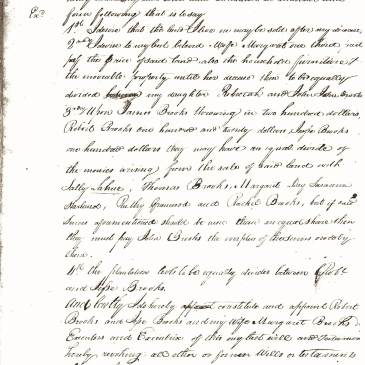 form following that is to say
Ex.
1st I desire that the land I live on may be sold after my decease
2nd I leave to my well beloved Wife Margaret one third and
half the price of said land also the household furniture &
the movable property until her decease then to be equally
divided my daughter Rebeccah and John Brooks
3rdly When James Brooks throwing in two hundred dollars,
Robert Brooks one hundred and twenty dollars Jesse Brooks
one hundred dollars they may have an equal divide of
the monies arising from the sale of said land with
Sally Thomas Brooks, Margaret Susana
Polly and Rachel Brooks, but if said
sums aforementioned should be more than an equal share then
they must pay Brooks the surplus of the sums over by
their.
4th the plantation tools to be equally divided between Robt
and Jesse Brooks.
And lastly I do hereby constitute and appoint Robert
Brooks and Jesse Brooks and my Wife Margaret Brooks
Executors and Executrix of this my last will and Testament
hereby revoking all other or former Wills or testaments